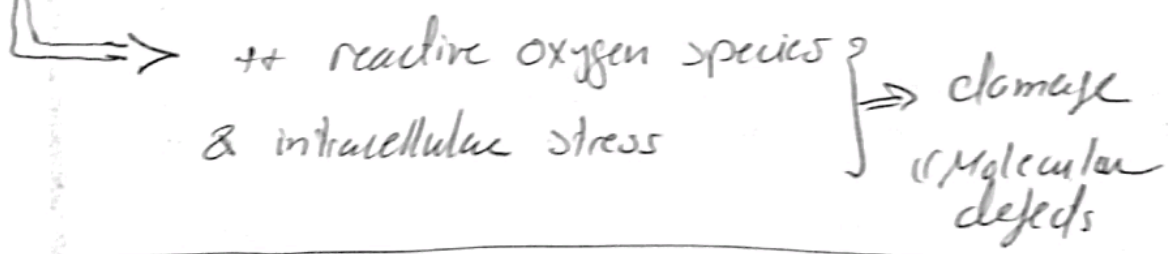 ++ reactive oxygen species
& intracellular stress
⇒ damage
"Molecular
defects